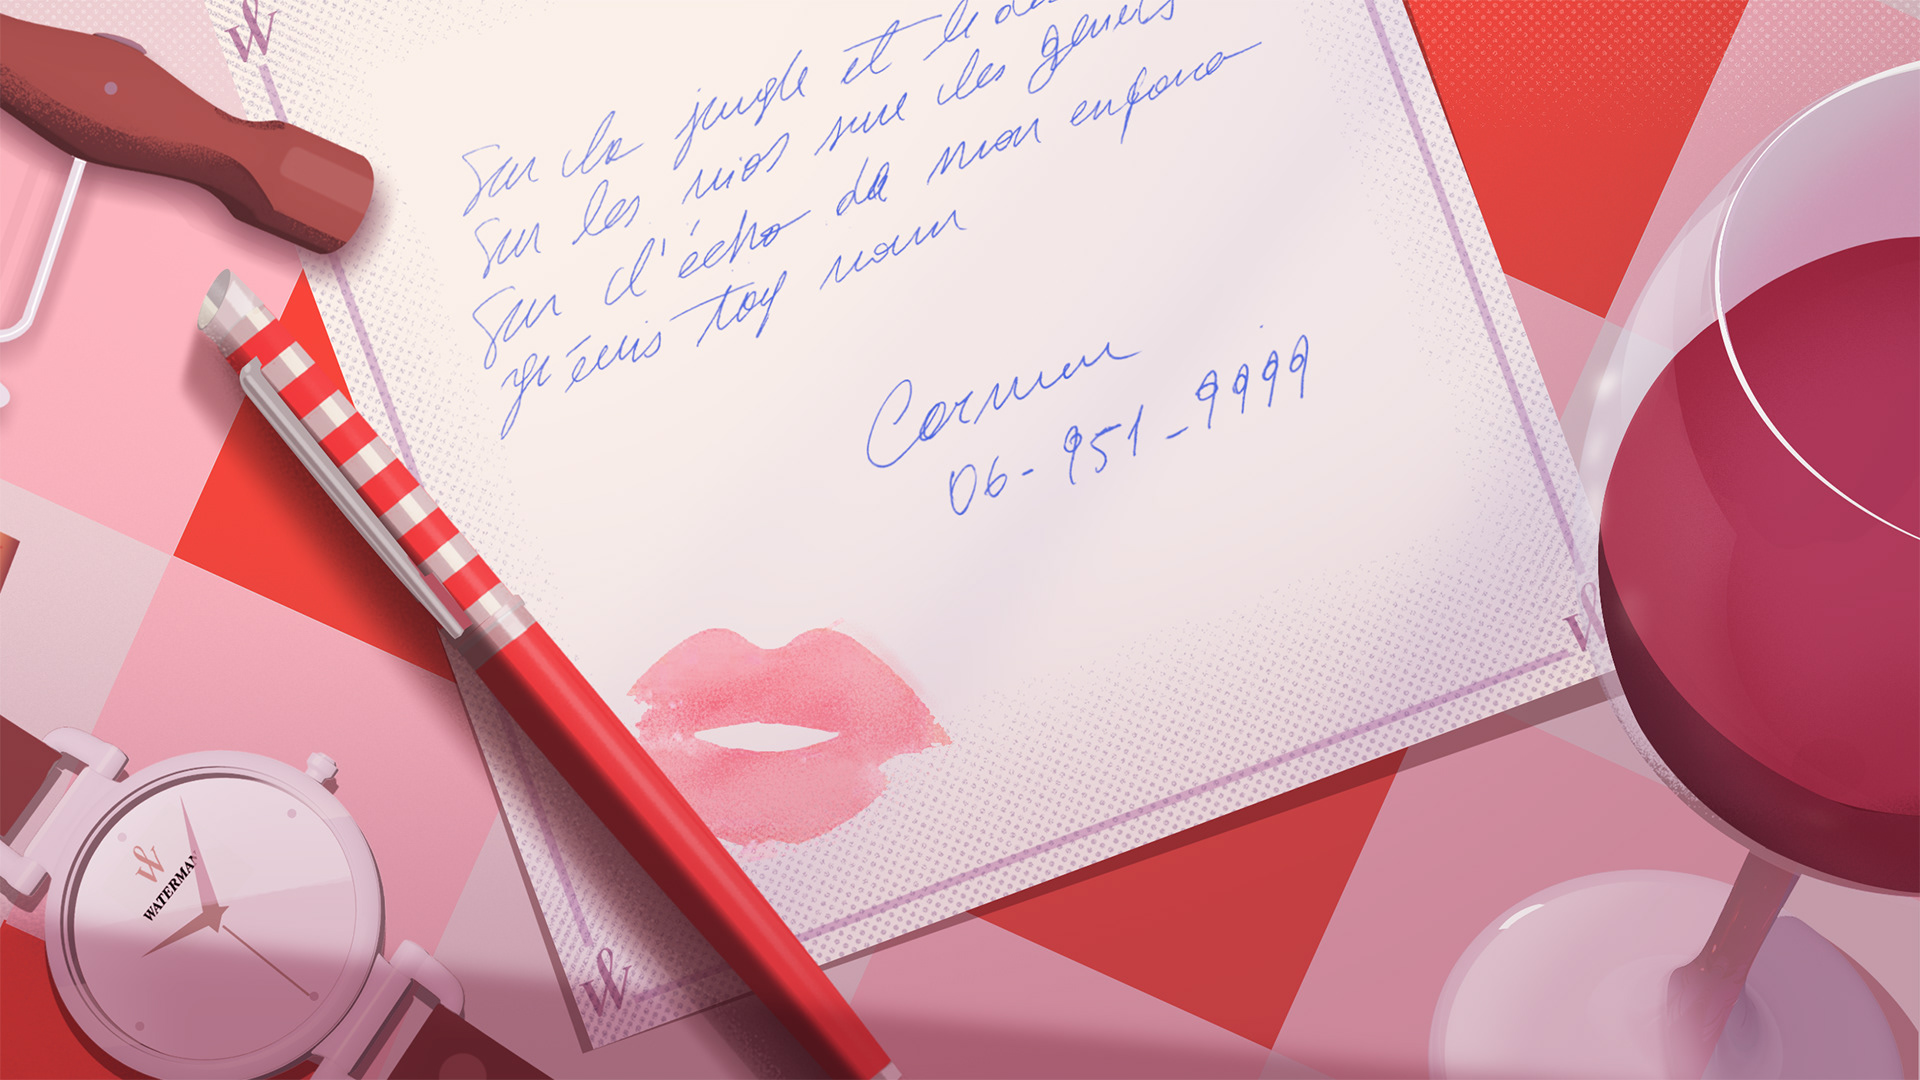 Sur la jungle et le
Sur les nids sur les genêts
Sur l'écho de mon enfance
j'écris ton nom
Carmen
06-951-9999
WATERMAN